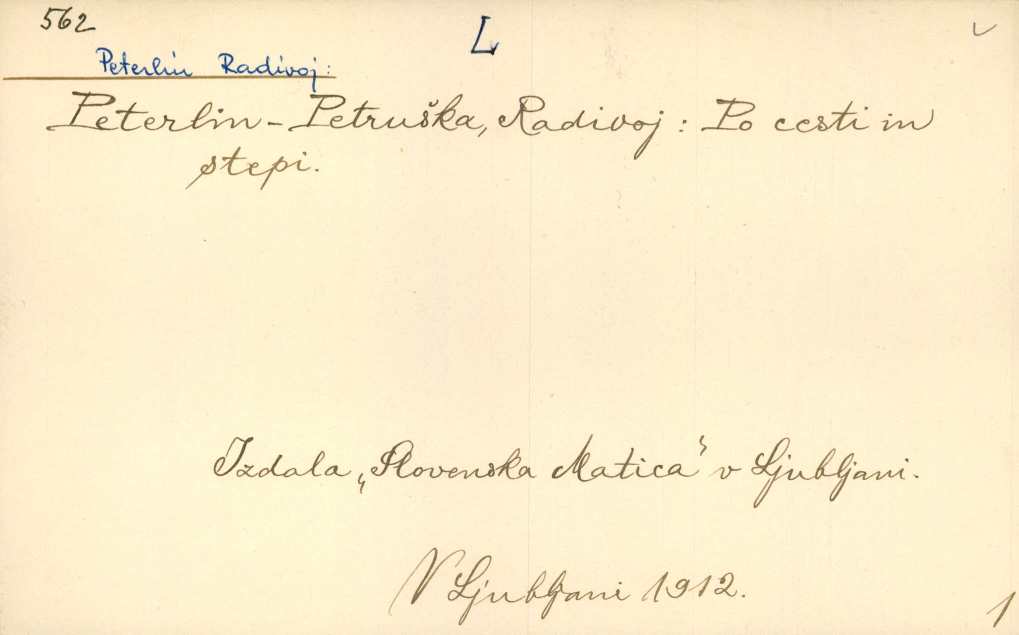 562
L
Peterlin Radivoj:
Peterlin-Petruška, Radivoj: Po cesti in
stepi.
Izdala „Slovenska Matica" v Ljubljani.
V Ljubljani 1912.
1